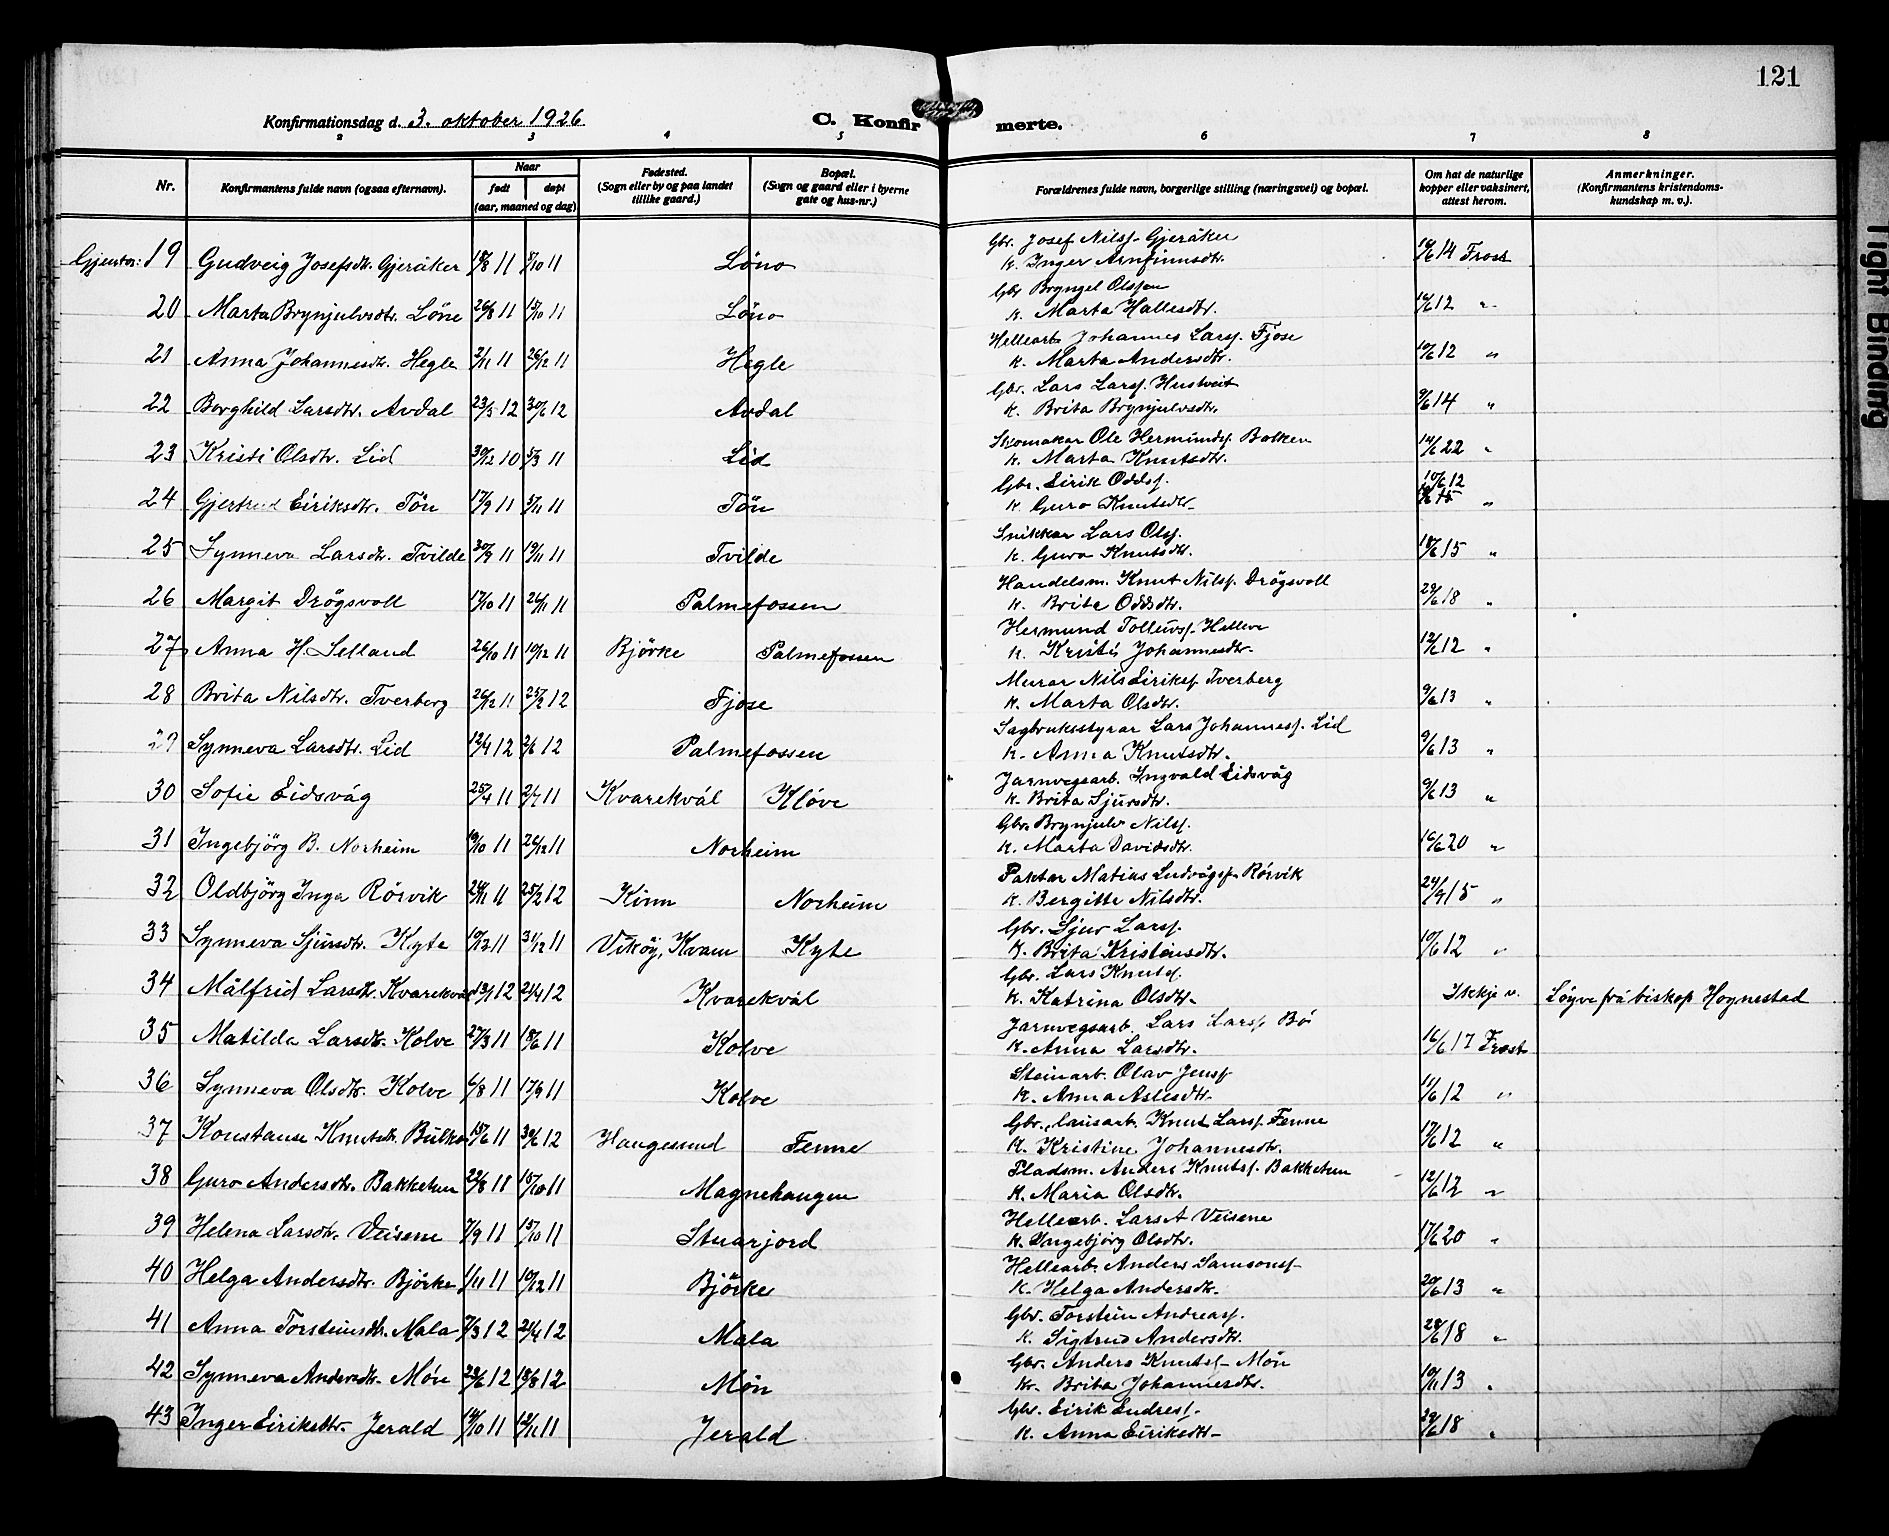 121
Konfirmationsdag d. 3. oktober 1926. C. Konfir merte.
2 3 4 5 6 7 8
Nr. Konfirmantens fulde navn (ogsaa efternavn). Naar født døpt (aar, maaned og dag) Fødested. (Sogn eller by og paa landet tillike gaard.) Bopæl. (Sogn og gaard eller i byerne gate og hus-nr.) Forældrenes fulde navn, borgerlige stilling (næringsvei) og bopæl. Om hat de naturlige kopper eller vaksinert, attest herom. Anmerkninger. (Konfirmantens kristendoms- kundskap m. v.).
Gjentor: 19 Gudveig Josefsdtr. Gjeråker 18/8 11 8/10 11 Løno Gbr. Josef Nilss. Gjeråker
k. Inger Arnfinnsdtr. 14 Frost
20 Marta Brynjulvsdtr. Löne 26/8 11 15/10 11 Löno Gbr Bryngel Olssen
k. Marta Hallesdtr. 12 "
21 Anna Johannesdtr. Hegle 2/11 11 26/12 11 Hegle Hellearb. Johannes Larss. Fjose
k. Marta Andersdtr. 10/6 12 "
22 Borghild Larsdtr. Avdal 23/5 12 30/6 12 Avdal Gbr. Lars Larss. Hustveit
k. Brita Brynjulvsdtr. 9/6 14 "
23 Kristi Olsdtr. Lid 30/12 10 5/3 11 Lid Skomakar Ole Hermundss. Bolken
k. Marta Knutsdtr. 14/6 22 "
24 Gjertrud Eiriksdtr. Tön 17/9 11 5/11 11 Tön Gbr. Eirik Oddss.
k. Guro Knutsdtr. 10/6 12 "
25 Synneva Larsdtr. Tvilde 30/9 11 19/11 11 Tvilde Snikkar Lars Olss.
k. Guro Knutsdtr. 18/6 15 "
26 Margit Drögsvoll 17/10 11 26/11 11 Palmefossen Handelsm. Knut Nilss. Drögsvoll
k. Brita Oddsdtr. 29/6 18 "
27 Anna H. Selland 26/10 11 10/12 11 Björke Palmefossen Hermund Tolleivss. Helleve
k. Kristi Johannesdtr. 12/6 12 "
28 Brita Nilsdtr. Tverberg 26/12 11 25/2 12 Fjose Murar Nils Eirikss. Tverberg
k. Marta Olsdtr. 9/6 13 "
29 Synneva Larsdtr. Lid 12/4 12 2/6 12 Palmefossen Sagbruksstyrar Lars Johanness. Lid
k. Anna Knutsdtr. 9/6 13 "
30 Sofie Eidsvåg 25/4 11 2/7 11 Kvarekvål Klöve Jarnvegsarb. Ingvald Eidsvåg
k. Brita Sjursdtr. 9/6 13 "
31 Ingebjörg B. Norheim 19/10 11 26/12 11 Norheim Gbr. Brynjulv Nilss.
k. Marta Davidsdtr. 16/6 20 "
32 Oldbjörg Inga Rörvik 24/11 11 25/2 12 Kinn Norheim Paktar Matias Ludvigss. Rörvik
k. Bergitte Nilsdtr. 24/9 15 "
33 Synneva Sjursdtr. Kyte 10/12 11 31/12 11 Viköy, Kvam Kyte Gbr. Sjur Larss.
k. Brita Kristensdtr. 10/6 12 "
34 Målfrid Larsdtr. Kvarekvål 13/1 12 21/4 12 Kvarekvål Gbr. Lars Knutss.
k. Katrina Olsdtr. Ikkje v. Löyve frå biskop Hognestad
35 Matilda Larsdtr. Kolve 27/3 11 18/6 11 Kolve Jarnvegsarb. Lars Larss. Bö
k. Anna Larsdtr. 16/6 17 Frost
36 Synneva Olsdtr. Kolve 6/8 11 17/9 11 Kolve Steinarb. Olav Jenss.
k. Anna Aslesdtr. 11/6 12 "
37 Konstanse Knutsdtr. Bulko 15/6 11 30/6 12 Haugesund Fenne Gbr., Knut Larss. Fenne
k. Kristine Johannesdtr. 17/6 12 "
38 Guro Andersdtr. Bakketun 22/8 11 15/10 11 Magnehaugen Pladsm. Anders Knutss. Bakketun
k. Maria Olsdtr. 12/6 12 "
39 Helena Larsdtr. Veisene 7/9 11 15/10 11 Stuarjord Hellearb. Lars A Veisene
k. Ingebjörg Olsdtr. 17/6 20 "
40 Helga Andersdtr. Björke 1/11 11 10/12 11 Björke Hellearb. Anders Samsonss.
k. Helga Andersdtr. 20/6 13 "
41 Anna Torsteinsdtr. Mala 7/3 12 21/4 12 Mala Gbr. Torstein Andreass.
k. Sigtrud Andersdtr. 28/6 18 "
42 Synneva Andersdtr. Mön 23/6 12 18/8 12 Mön Gbr. Anders Knutss. Mön
k. Brita Johannesdtr. 10/11 13 "
43 Inger Eiriksdtr. Jerald 14/10 11 12/11 11 Jerald Gbr. Eirik Endress.
k. Anna Eiriksdtr. 29/6 18 "
Tight Binding